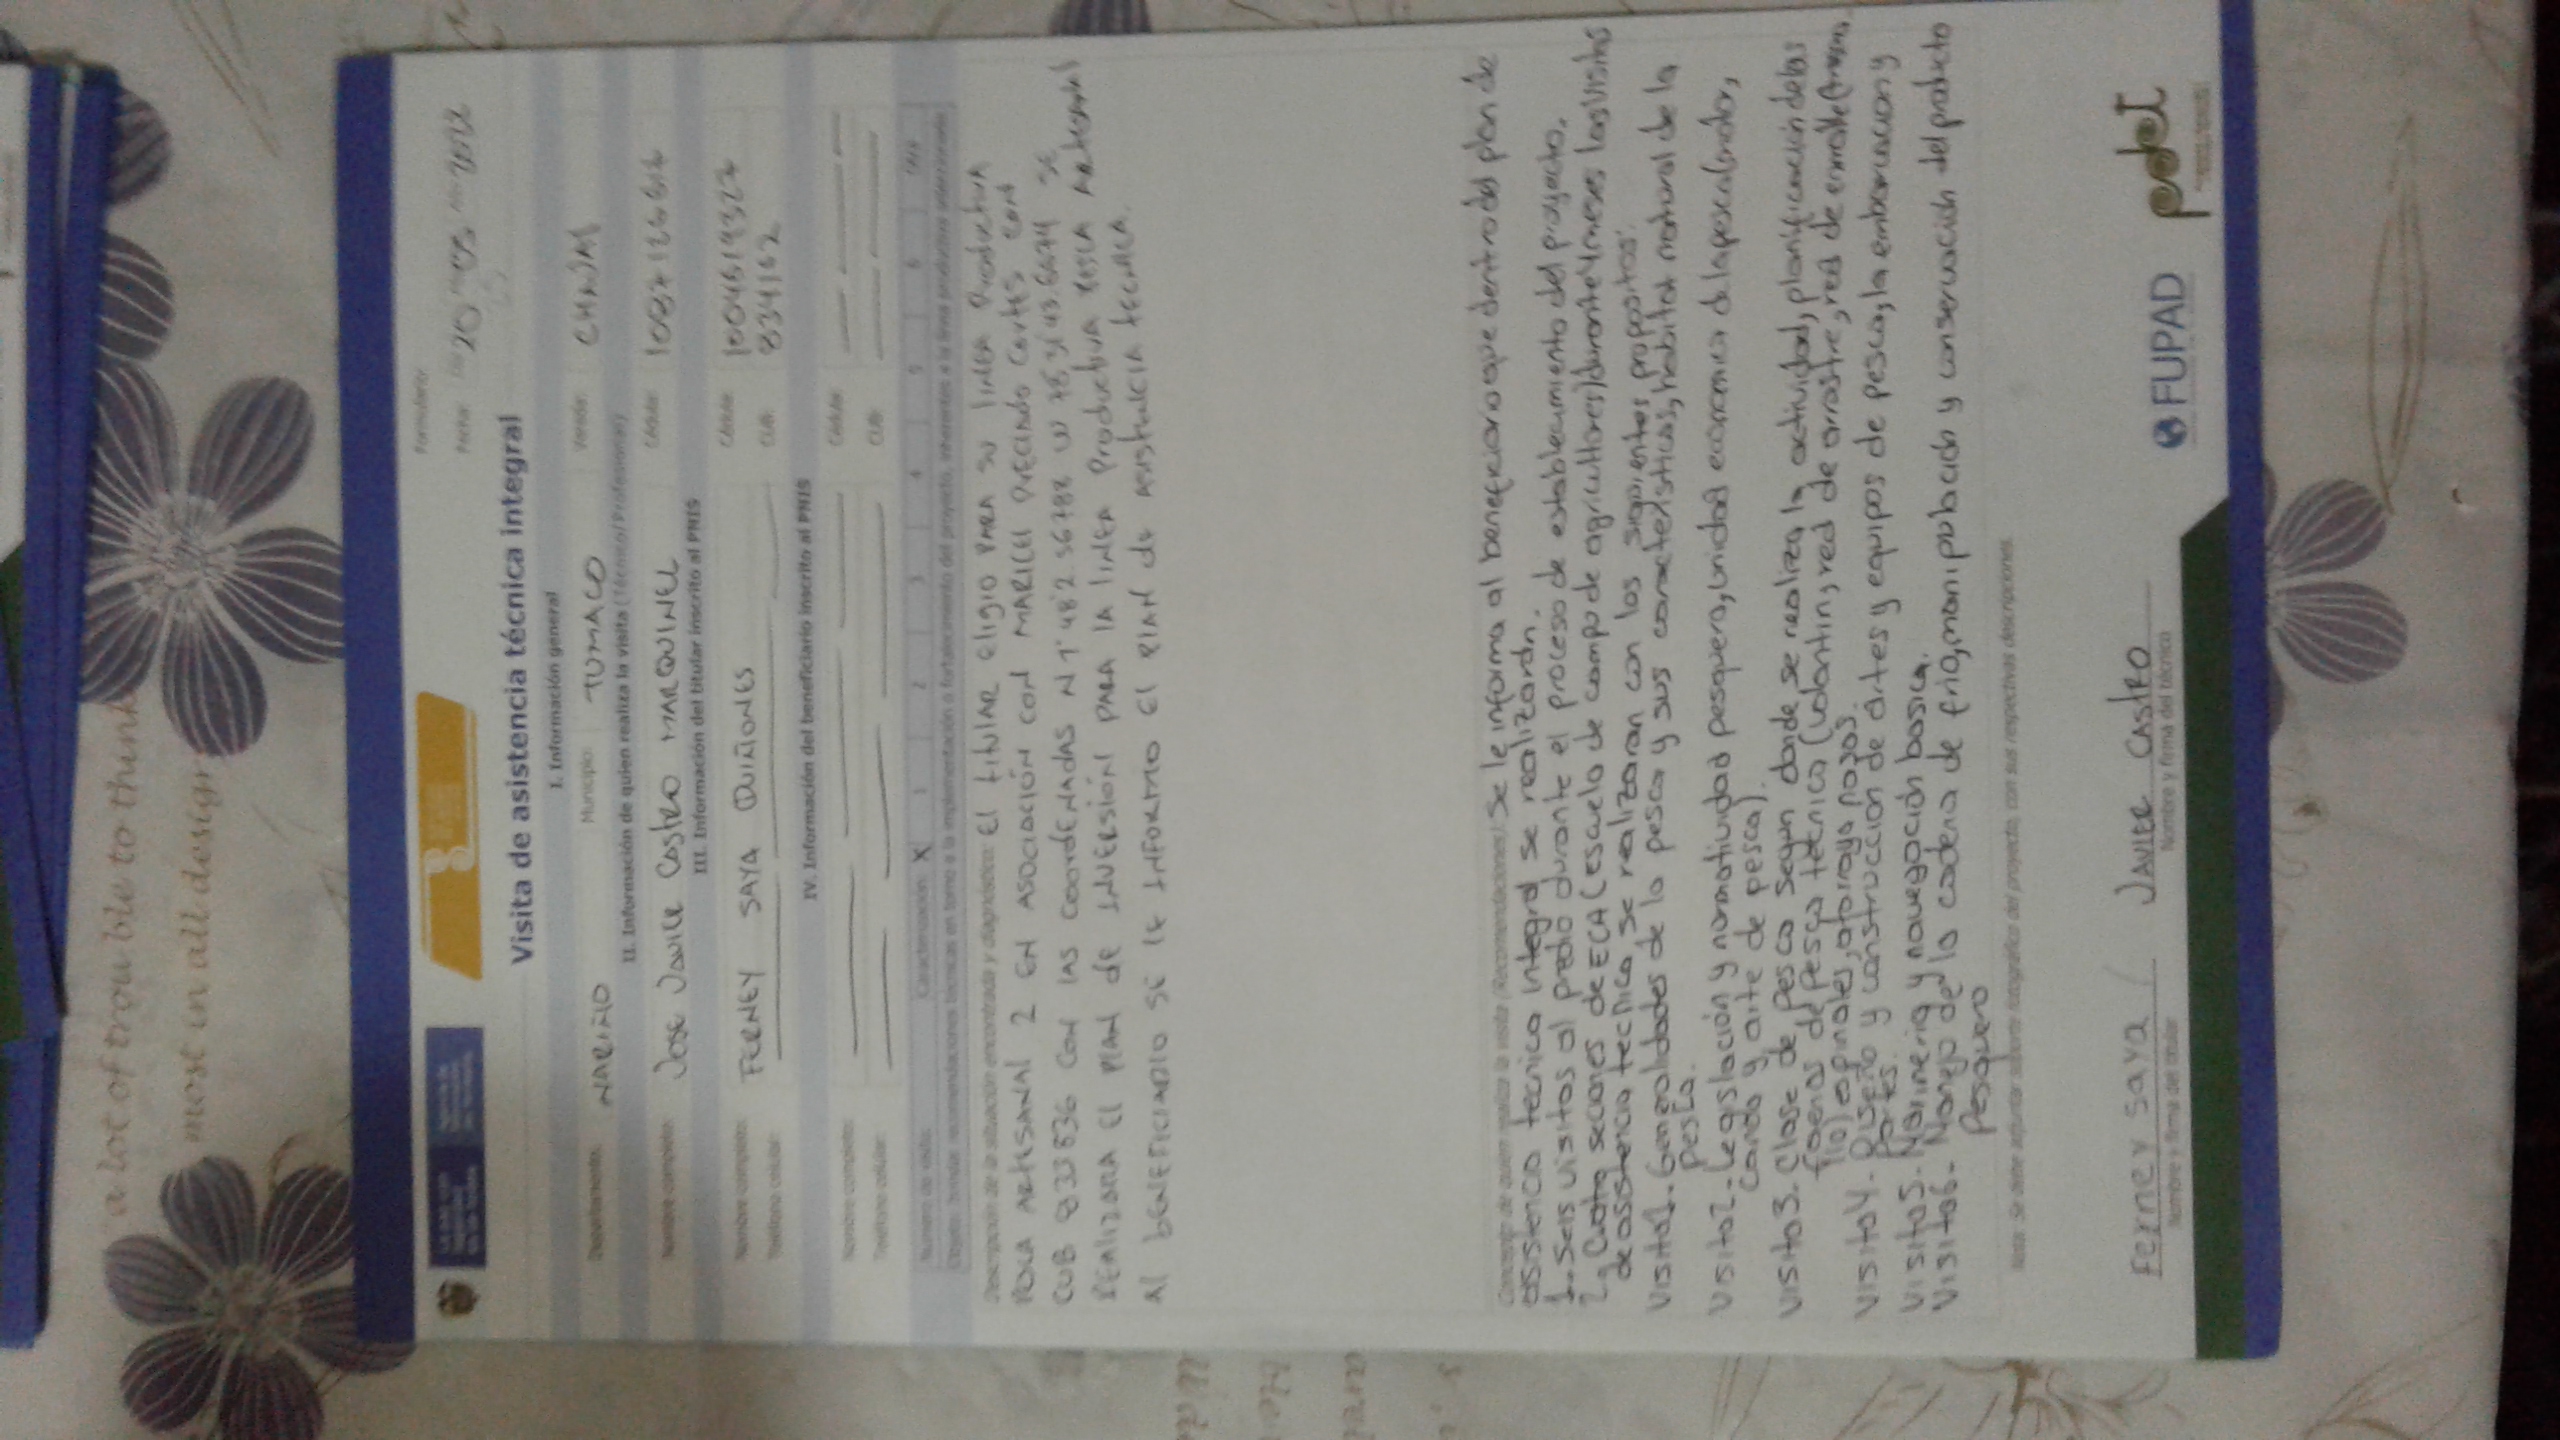 a lot of trouble to think
most in all design
Formulario:
Fecha: 20 05 2022
Visita de asistencia técnica integral
I. Información general
Departamento: NARIÑO Municipio: TUMACO Vereda:
II. Información de quien realiza la visita (Técnico/Profesional)
Nombre completo: JOSE JAVIER CASTRO MARQUINEZ Cédula: 1087126616
III. Información del titular inscrito al PNIS
Nombre completo: FERNEY SAYA QUIÑONES Cédula: 1004619327
Teléfono celular: CUB: 8334162
IV. Información del beneficiario inscrito al PNIS
Nombre completo: Cédula:
Teléfono celular: CUB:
Número de visita: Caracterización: X 1 2 3 4 5 6 Otra
Objeto: Brindar recomendaciones técnicas en torno a la implementación o fortalecimiento del proyecto, inherentes a la línea productiva seleccionada
Descripción de la situación encontrada y diagnóstico: El titular eligio PARA su linea Productiva
ARTESANAL 2 EN ASOCIACIÓN CON MARICEL PRECIADO Cortes CON
CUB 833836 CON LAS COORDENADAS N 1° 48'2 SE
REALIZARA El PLAN DE INVERSIÓN PARA LA LINEA Productiva PESCA ARTESANAL
Al BENEFICIARIO SE le INFORMO El PLAN de ASISTENCIA TECNICA.
Concepto de quien realiza la visita (Recomendaciones) Se le informa al beneficiario que dentro del plan de
asistencia tecnica integral se realizarán.
1. Seis visitas al predio durante el proceso de establecimiento del proyecto.
2. Cuatro secciones de ECA (escuela de campo de agricultores) durante 4 meses las visitas
de asistencia tecnica se realizaran con los siguientes propositos:
Visita1. Generalidades de la pesca y sus caracteristicas, habitat natural de la
pesca.
Visita2. Legislación y normatividad pesquera, unidad economica de la pesca (motor,
canoa y arte de pesca).
Visita3. Clase de pesca segun donde se realiza la actividad, planificacion de las
faenas de pesca tecnica (volantin, red de arrastre, red de enmalle (trasma
llo) espinales, atarraya nasas.
Visita4. Diseño y construccion de artes y equipos de pesca, la embarcacion y
partes.
Visita5. Marineria y navegación basica.
Visita6. Manejo de la cadena de frio, manipulación y conservación del producto
Pesquero
Nota: Se debe adjuntar soporte fotográfico del proyecto con sus respectivas descripciones.
Ferney saya / JAVIER CASTRO
Nombre y firma del titular Nombre y firma del técnico
FUPAD pdet